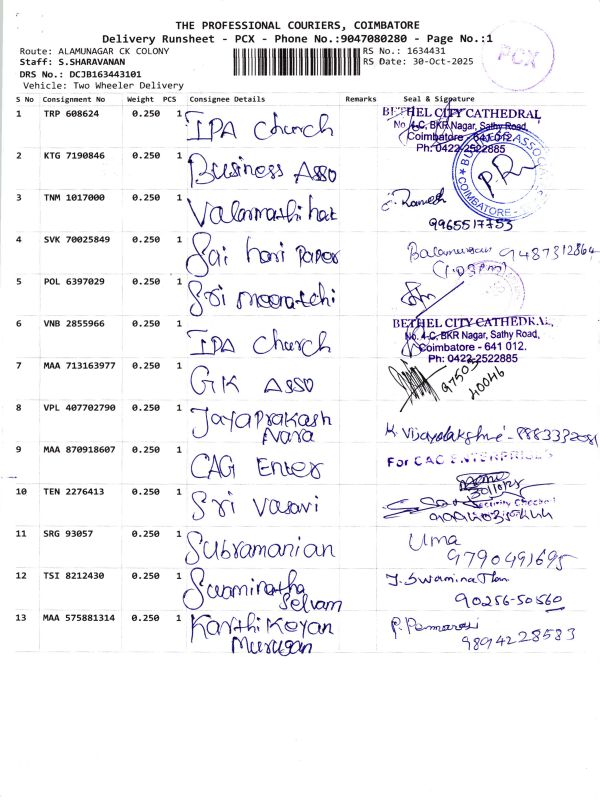 THE PROFESSIONAL COURIERS, COIMBATORE
Delivery Runsheet - PCX - Phone No.:9047080280 - Page No.:1
Route: ALAMUNAGAR CK COLONY
RS No.: 1634431
PCX
Staff: S.SHARAVANAN
RS Date: 30-Oct-2025
DRS No.: DCJB163443101
Vehicle: Two Wheeler Delivery
S No Consignment No Weight PCS Consignee Details Remarks Seal & Signature
1 TRP 608624 0.250 1 IPA Church
BETHEL CITY CATHEDRAL
No. 4-C, BKR Nagar, Sathy Road,
Coimbatore - 641 012.
Ph: 0422-2522885
2 KTG 7190846 0.250 1 Business Asso
COIMBATORE
3 TNM 1017000 0.250 1 Valarmathi
Ramesh
9965517753
4 SVK 70025849 0.250 1 Sai hari Paper
Balamurugan 9487312864
5 POL 6397029 0.250 1 Sri
6 VNB 2855966 0.250 1 IPA Church
BETHEL CITY CATHEDRAL,
No. 4-C, BKR Nagar, Sathy Road,
Coimbatore - 641 012.
Ph: 0422-2522885
7 MAA 713163977 0.250 1 GK Asso
8 VPL 407702790 0.250 1 JayaPrakash
Nara
K. Vijayalakshmi - 8883332081
9 MAA 870918607 0.250 1 CAG Enter
For CAG ENTERPRISES
10 TEN 2276413 0.250 1 Sri Vasavi
30/10/25
11 SRG 93057 0.250 1 Subramanian
Uma
9790491695
12 TSI 8212430 0.250 1 Swaminatha
Selvam
J. Swaminathan
90256-50560
13 MAA 575881314 0.250 1 Karthikeyan
Murugan
9894228583